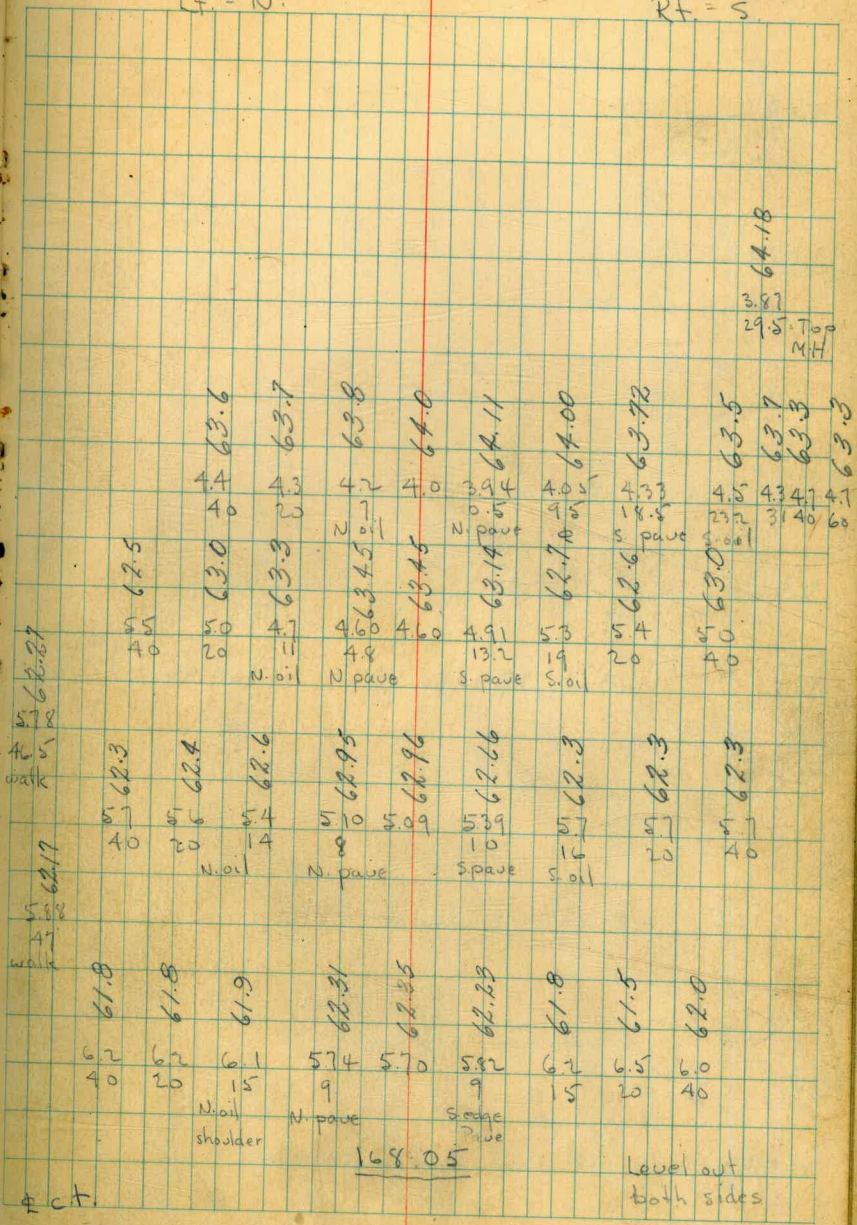 Lt. = N. Rt. = S.
64.18
3.87
29.5 Top
M.H.
63.6 63.7 63.8 64.0 64.11 64.00 63.72 63.5 63.7 63.3 63.3
4.4 4.3 4.2 4.0 3.94 4.05 4.33 4.5 4.3 4.7 4.7
40 20 7 0.5 9.5 18.5 23.2 31 40 60
N. oil N. pave S. pave S. oil
62.5 63.0 63.3 63.45 63.45 63.14 62.7 62.6 63.0
5.5 5.0 4.7 4.60 4.60 4.91 5.3 5.4 5.0
40 20 11 4.8 13.2 19 20 40
N. oil N. pave S. pave S. oil
62.27
5.78
46.5
walk
62.3 62.4 62.6 62.95 62.96 62.66 62.3 62.3 62.3
5.7 5.6 5.4 5.10 5.09 5.39 5.7 5.7 5.7
40 20 14 8 10 16 20 40
N. oil N. pave S. pave S. oil
62.17
5.88
47
walk
61.8 61.8 61.9 62.31 62.35 62.23 61.8 61.5 62.0
6.2 6.2 6.1 5.74 5.70 5.82 6.2 6.5 6.0
40 20 15 9 9 15 20 40
N. oil N. pave S. edge
shoulder Pave
168.05
Level out
both sides
℄ ct.